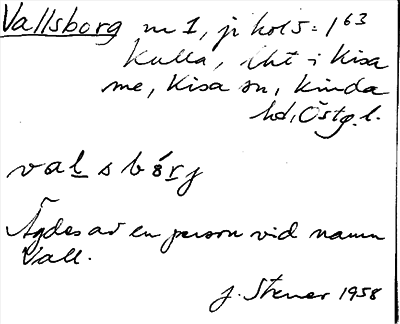 Vallsborg nr 1, jr kol 5:1 63
Kulla, lht i Kisa
me, Kisa sn, Kinda
hd, Östg. l.
valsbórj
Ägdes av en person vid namn
Vall.
J. Stener 1958